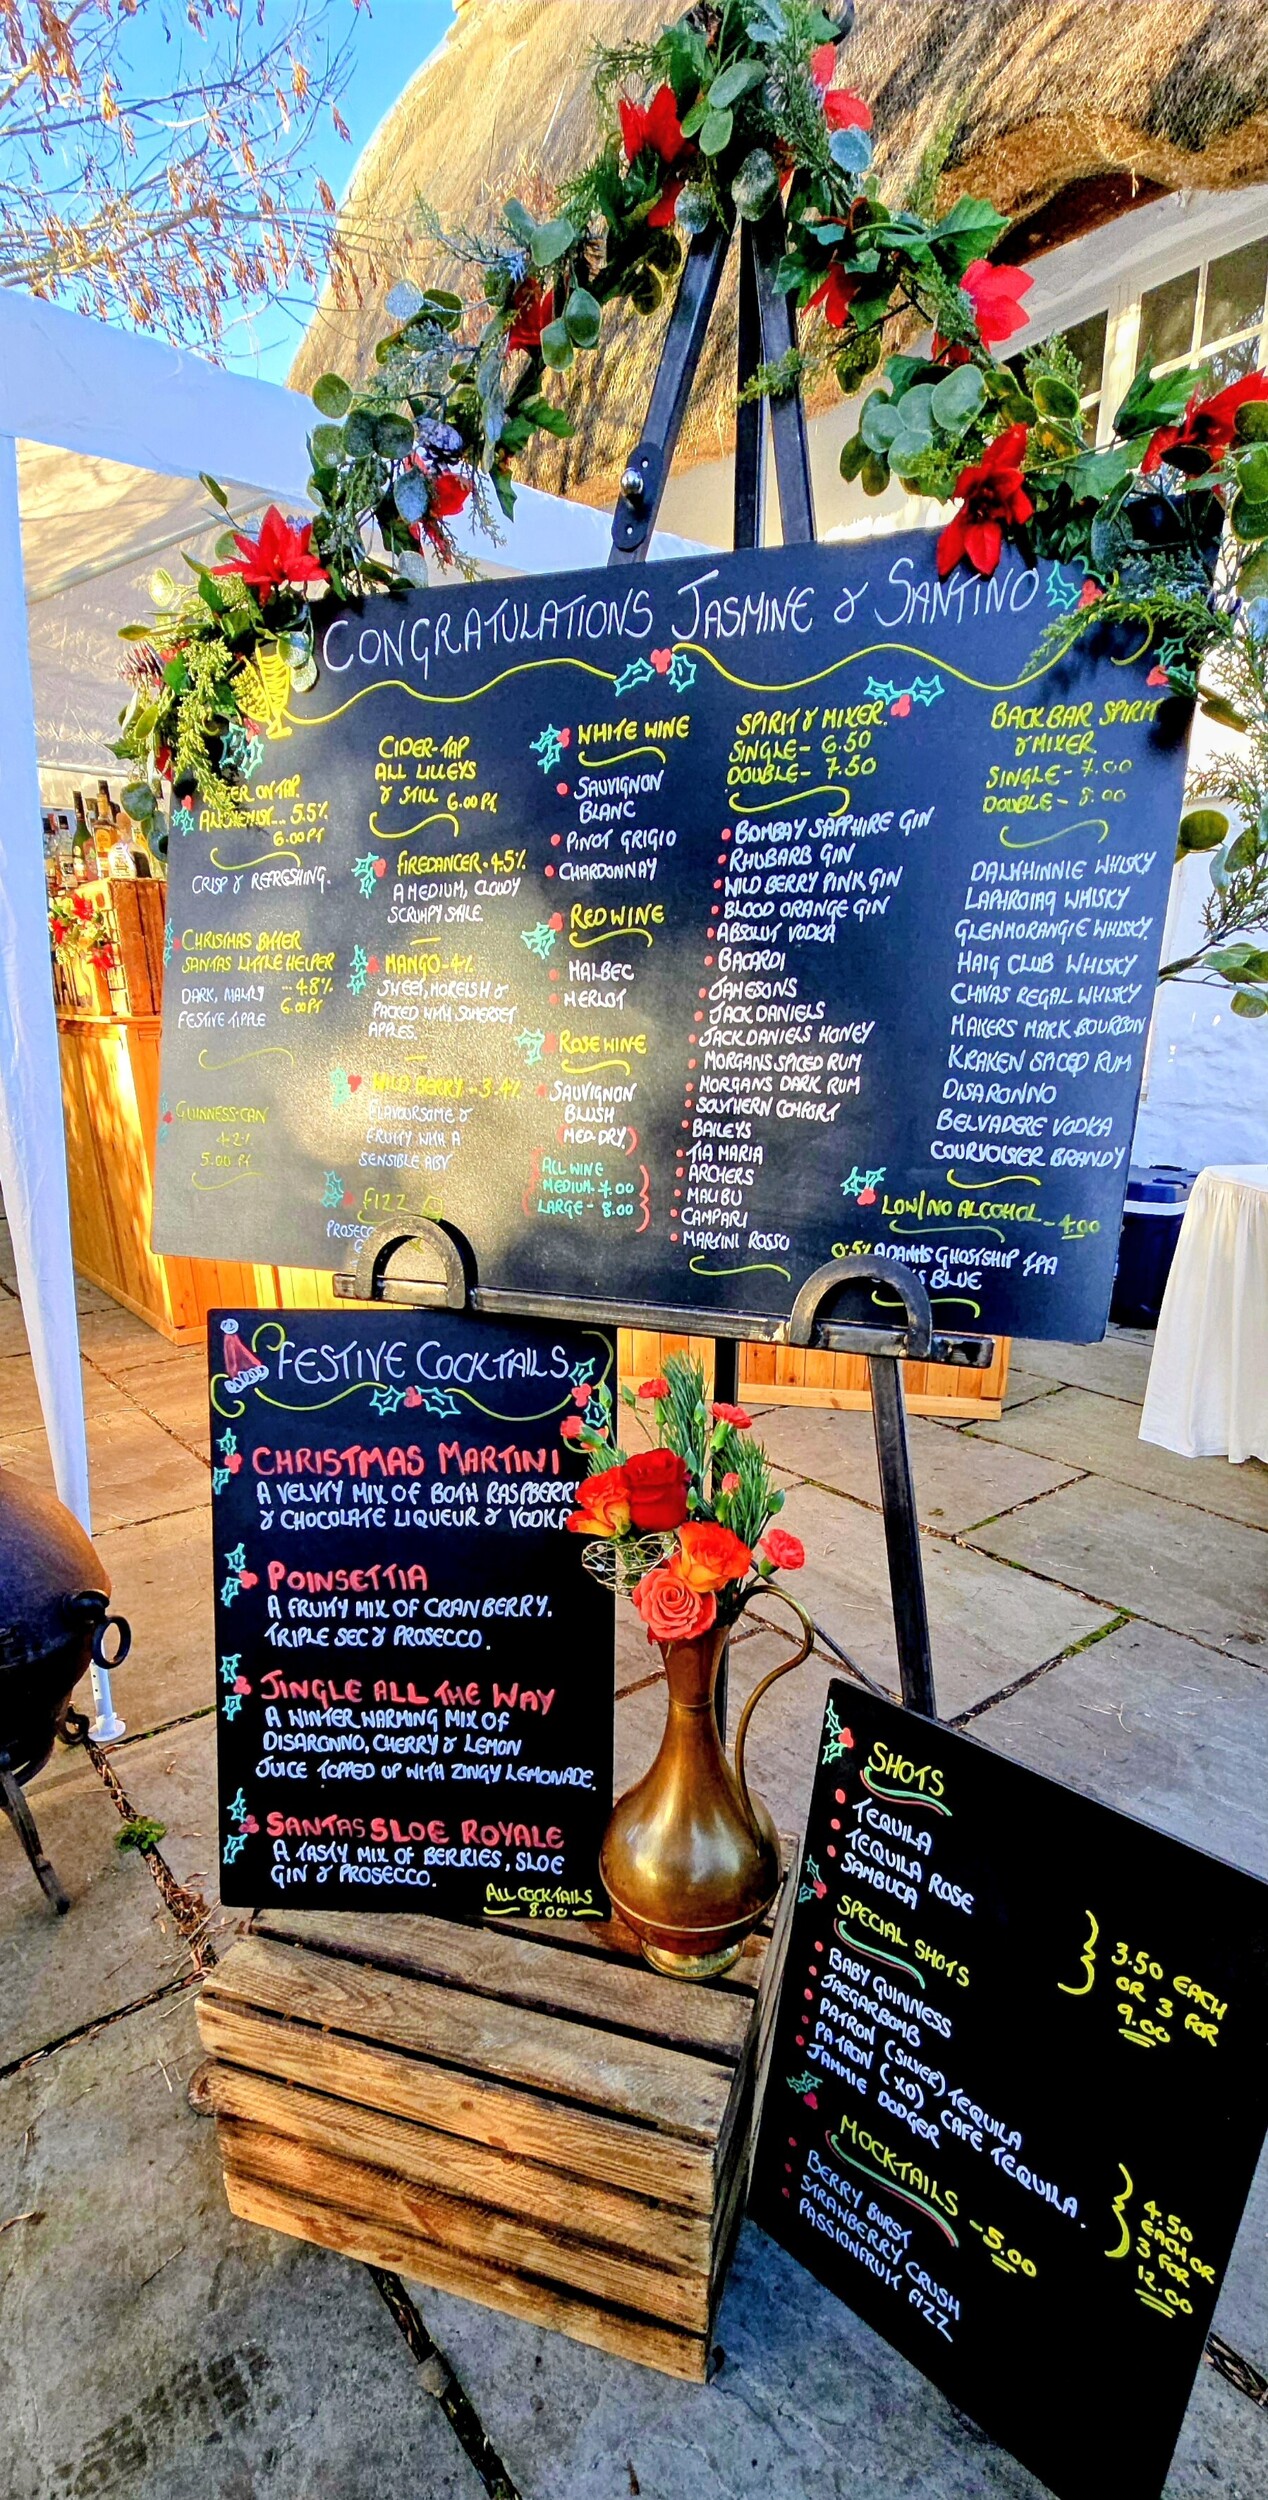 CONGRATULATIONS JASMINE & SANTINO
ON TAP
5.5%
6.00 PT
CRISP & REFRESHING.
CHRISTMAS BITTER
SANTAS LITTLE HELPER
DARK, MALTY -- 4.8%
FESTIVE TIPPLE 6.00 PT
GUINNESS-CAN
4.2%
5.00 PT
CIDER-TAP
ALL LILLEYS
& STILL 6.00 PT
FIREDANCER - 4.5%
A MEDIUM, CLOUDY
SCRUMPY STYLE.
MANGO - 4%
SWEET, MOREISH &
PACKED WITH SOMERSET
APPLES.
WILD BERRY - 3.4%
FLAVOURSOME &
FRUITY WITH A
SENSIBLE ABV
FIZZ
WHITE WINE
SAUVIGNON
BLANC
PINOT GRIGIO
CHARDONNAY
RED WINE
MALBEC
MERLOT
ROSE WINE
SAUVIGNON
BLUSH
(MED-DRY)
ALL WINE
MEDIUM - 7.00
LARGE - 8.00
SPIRIT & MIXER.
SINGLE - 6.50
DOUBLE - 7.50
BOMBAY SAPPHIRE GIN
RHUBARB GIN
WILD BERRY PINK GIN
BLOOD ORANGE GIN
ABSOLUT VODKA
BACARDI
JAMESONS
JACK DANIELS
JACK DANIELS HONEY
MORGANS SPICED RUM
MORGANS DARK RUM
SOUTHERN COMFORT
BAILEYS
TIA MARIA
ARCHERS
MALIBU
CAMPARI
MARTINI ROSSO
BACK BAR SPIRIT
& MIXER
SINGLE - 7.00
DOUBLE - 8.00
DALWHINNIE WHISKY
LAPHROIAQ WHISKY
GLENMORANGIE WHISKY.
HAIG CLUB WHISKY
CHIVAS REGAL WHISKY
MAKERS MARK BOURBON
KRAKEN SPICED RUM
DISARONNO
BELVADERE VODKA
COURVOISIER BRANDY
LOW/NO ALCOHOL - 4.00
0.5% ADNAMS GHOSTSHIP IPA
BLUE
FESTIVE COCKTAILS
CHRISTMAS MARTINI
A VELVTY MIX OF BOTH
& CHOCOLATE LIQUEUR & VODKA
POINSETTIA
A FRUITY MIX OF CRANBERRY.
TRIPLE SEC & PROSECCO.
JINGLE ALL THE WAY
A WINTER WARMING MIX OF
DISARONNO, CHERRY & LEMON
JUICE TOPPED UP WITH ZINGY LEMONADE.
SANTAS SLOE ROYALE
A TASTY MIX OF BERRIES, SLOE
GIN & PROSECCO.
ALL COCKTAILS
8.00
SHOTS
TEQUILA
TEQUILA ROSE
SAMBUCA
3.50 EACH
OR 3 FOR
9.00
SPECIAL SHOTS
BABY GUINNESS
JAEGARBOMB
PATRON (SILVER) TEQUILA
PATRON (XO) CAFE TEQUILA.
JAMMIE DODGER
4.50
EACH OR
3 FOR
12.00
MOCKTAILS - 5.00
BERRY BURST
STRAWBERRY CRUSH
PASSIONFRUIT FIZZ